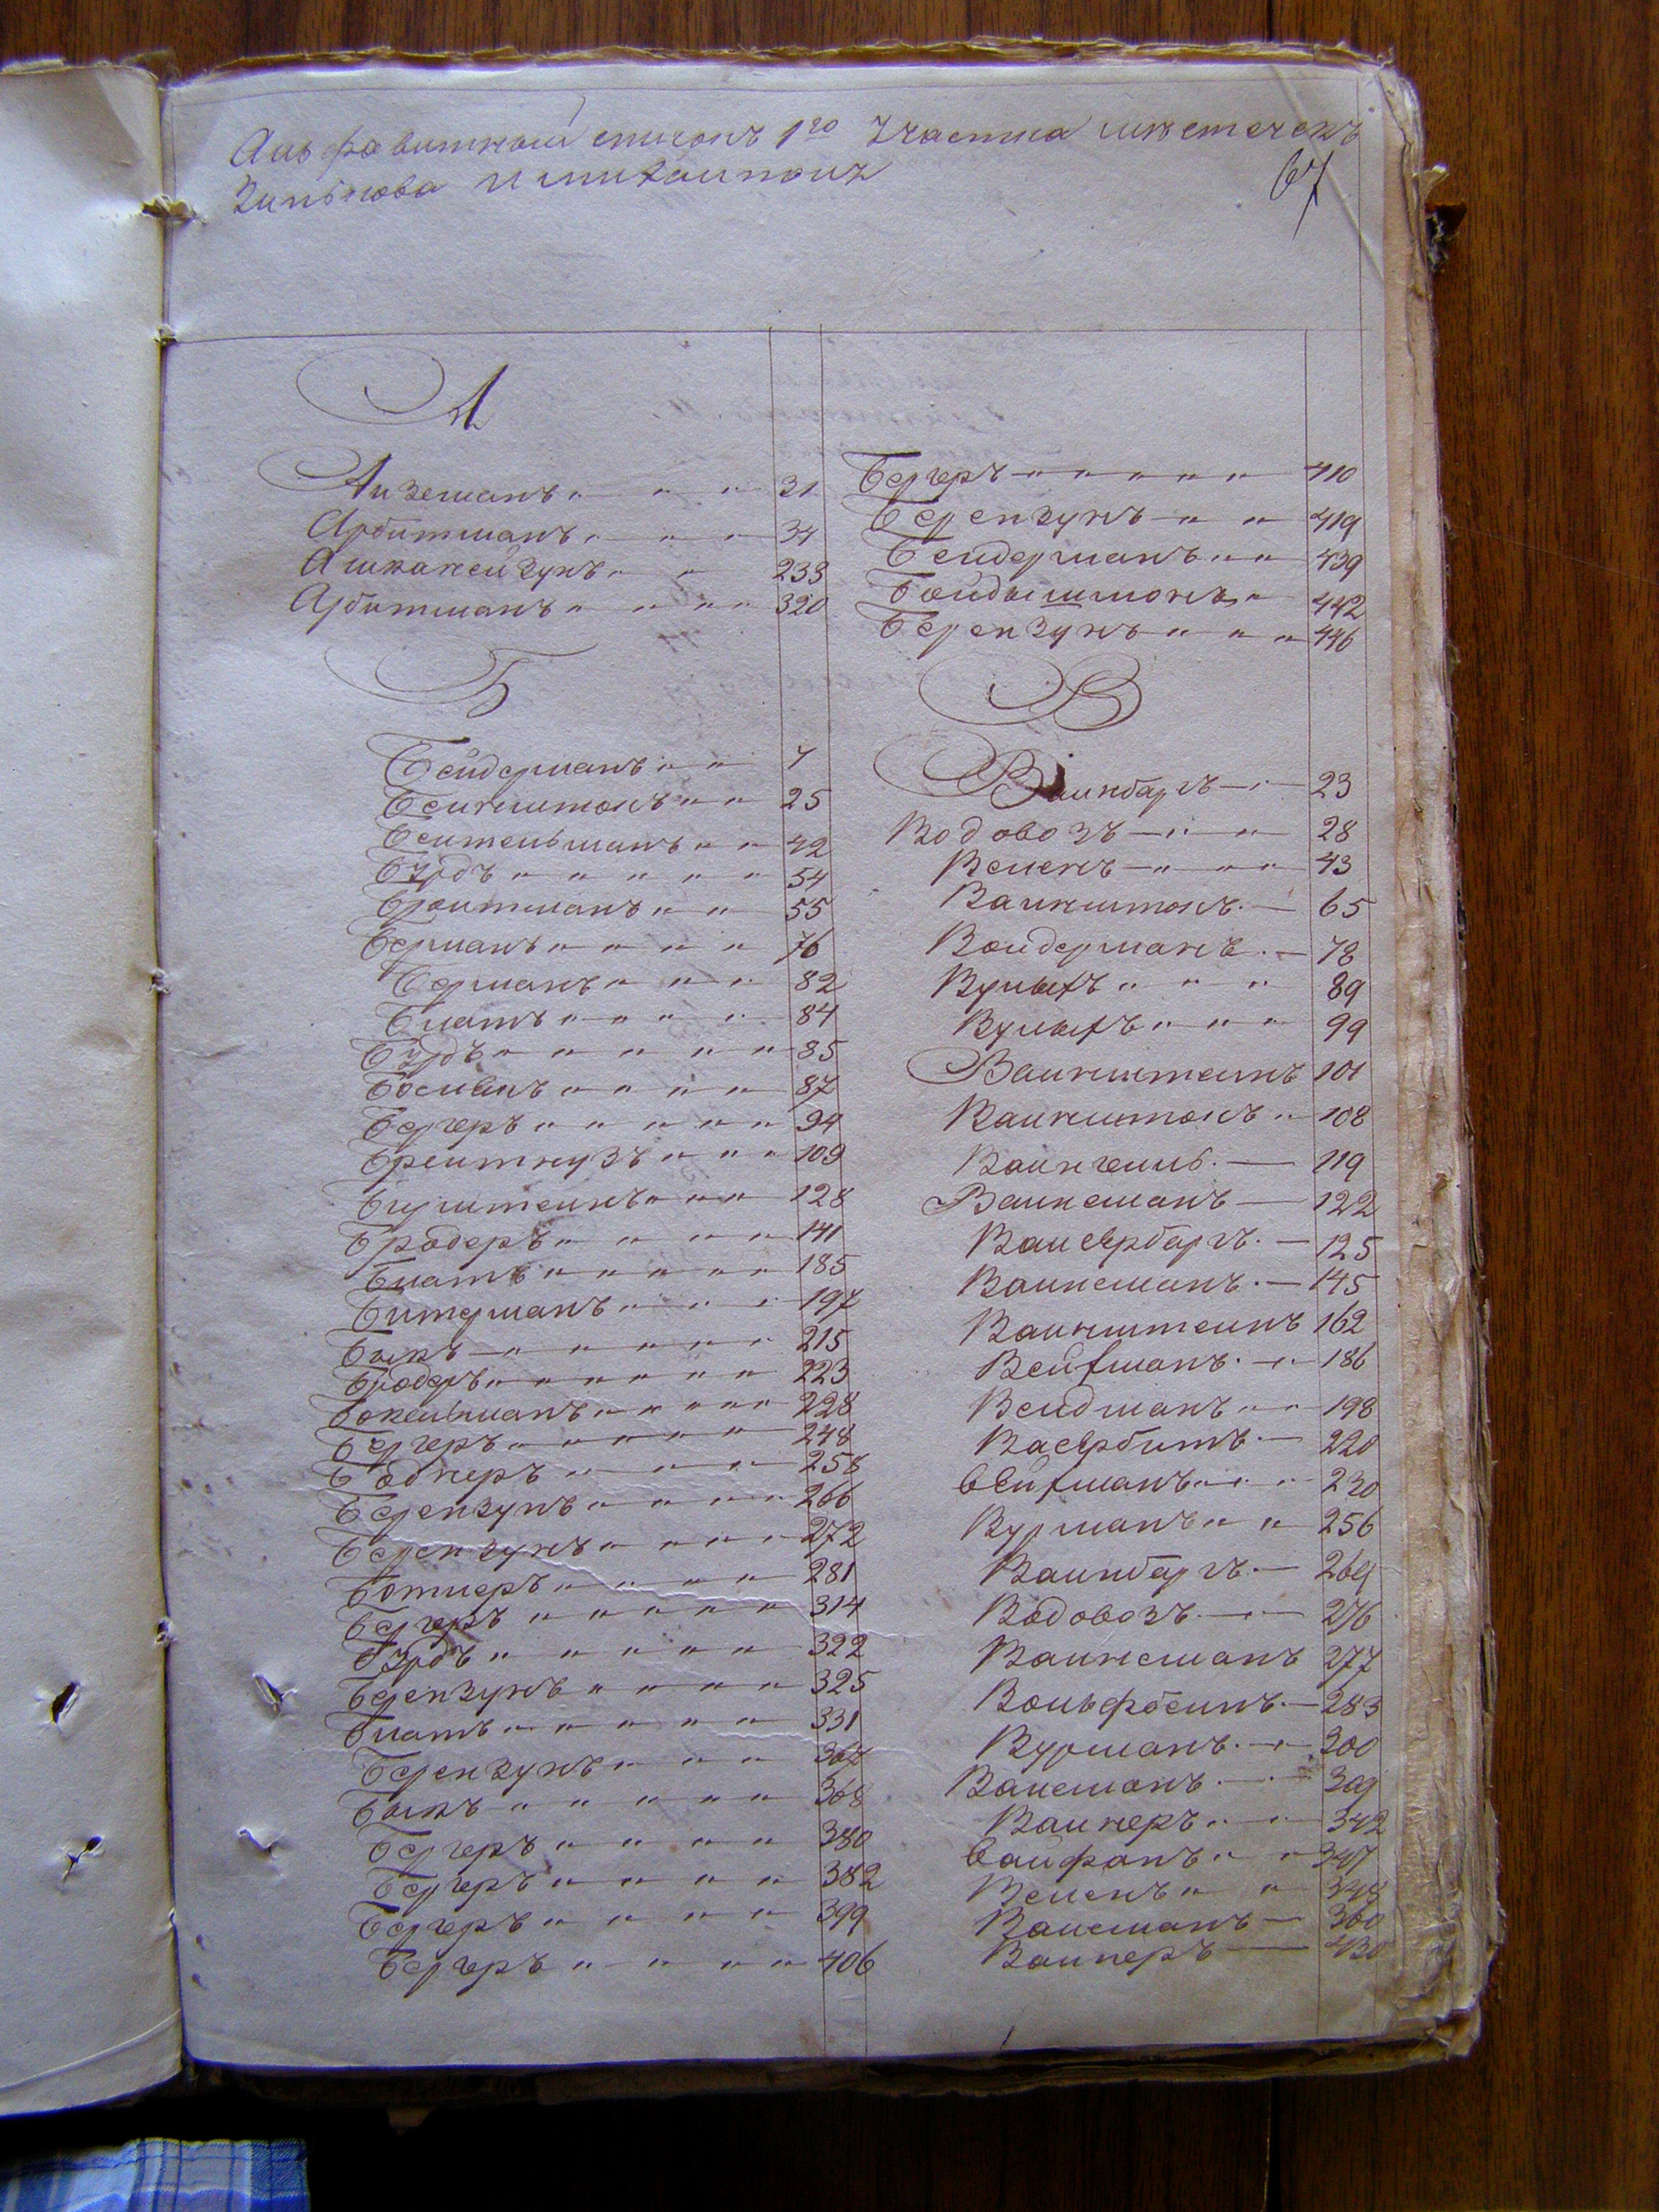 Альфавитный списокъ 1го Участка мѣстечекъ
Зинькова и Михалполя
67
А
Айземанъ 31
Арбитманъ 34
Ашканейзунъ 233
Арбитманъ 320
Б
Бейдерманъ 7
Бейнштокъ 25
Бейтельманъ 42
Бурдъ 54
Бройтманъ 55
Берманъ 76
Берманъ 82
Блатъ 84
Бурдъ 85
Бергеръ 94
Брейтнузъ 109
Бурштейнъ 128
Бродеръ 141
Блатъ 185
Битерманъ 197
Быкъ 215
Бродеръ 223
Бокельманъ 228
Бергеръ 248
Боднеръ 258
Берензунъ 266
Берензунъ 272
Ботнеръ 281
Бергеръ 314
Бурдъ 322
Берензунъ 325
Блатъ 331
Берензунъ 367
Быкъ 368
Бергеръ 380
Бергеръ 382
Бергеръ 399
Бергеръ 406
Бергеръ 410
Берензунъ 419
Бейдерманъ 439
Бойдыштокъ 442
Берензунъ 446
В
Вайнбаргъ 23
Водовозъ 28
Веленъ 43
Вайнштокъ 65
Войдерманъ 78
Вулыхъ 89
Вулыхъ 99
Вайнштейнъ 101
Вайнштокъ 108
Вайнгейль 119
Вайнеманъ 122
Вайсербаргъ 125
Вайнеманъ 145
Вайнштейнъ 162
Вейхманъ 186
Вейдманъ 198
Васербитъ 220
Вейхманъ 230
Вурманъ 256
Вайнбаргъ 269
Водовозъ 276
Вайнеманъ 277
Вольфбейнъ 283
Вурманъ 300
Валеманъ 309
Вайнеръ 342
Вайфанъ 347
Веленъ 348
Валеманъ 360
Вайнеръ 430